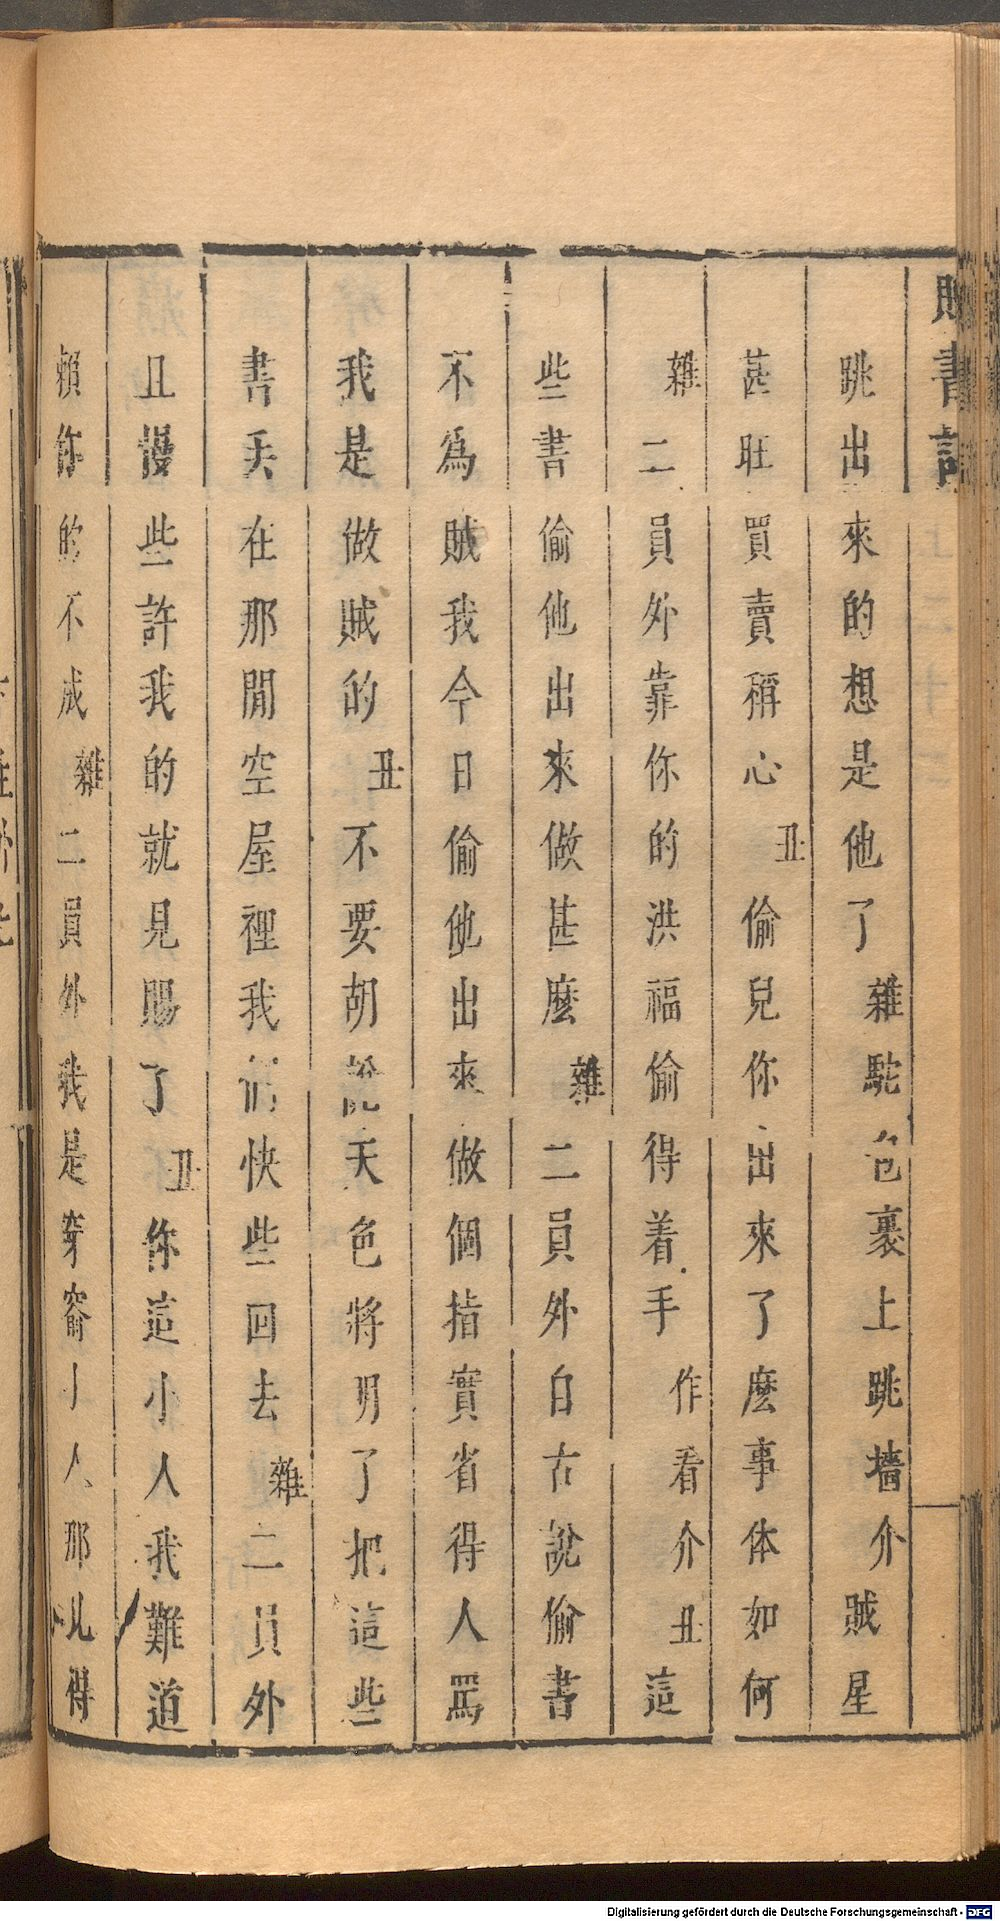 書記
跳出來的想是他了雜駝包裹上跳墻介賊星
甚旺買賣稱心丑偷兒你出來了麽事体如何
雜二員外靠你的洪福偷得着手作看介丑這
些書偷他出來做甚麽雜二員外自古說偷書
不爲賊我今日偷他出來做個指實省得人罵
我是做賊的丑不要胡說天色將明了把這些
書丟在那閒空屋裡我們快些回去雜二員外
且慢些許我的就見賜了丑你這小人我難道
賴你的不成雜二員外我是穿窬小人那見得
Digitalisierung gefördert durch die Deutsche Forschungsgemeinschaft - DFG